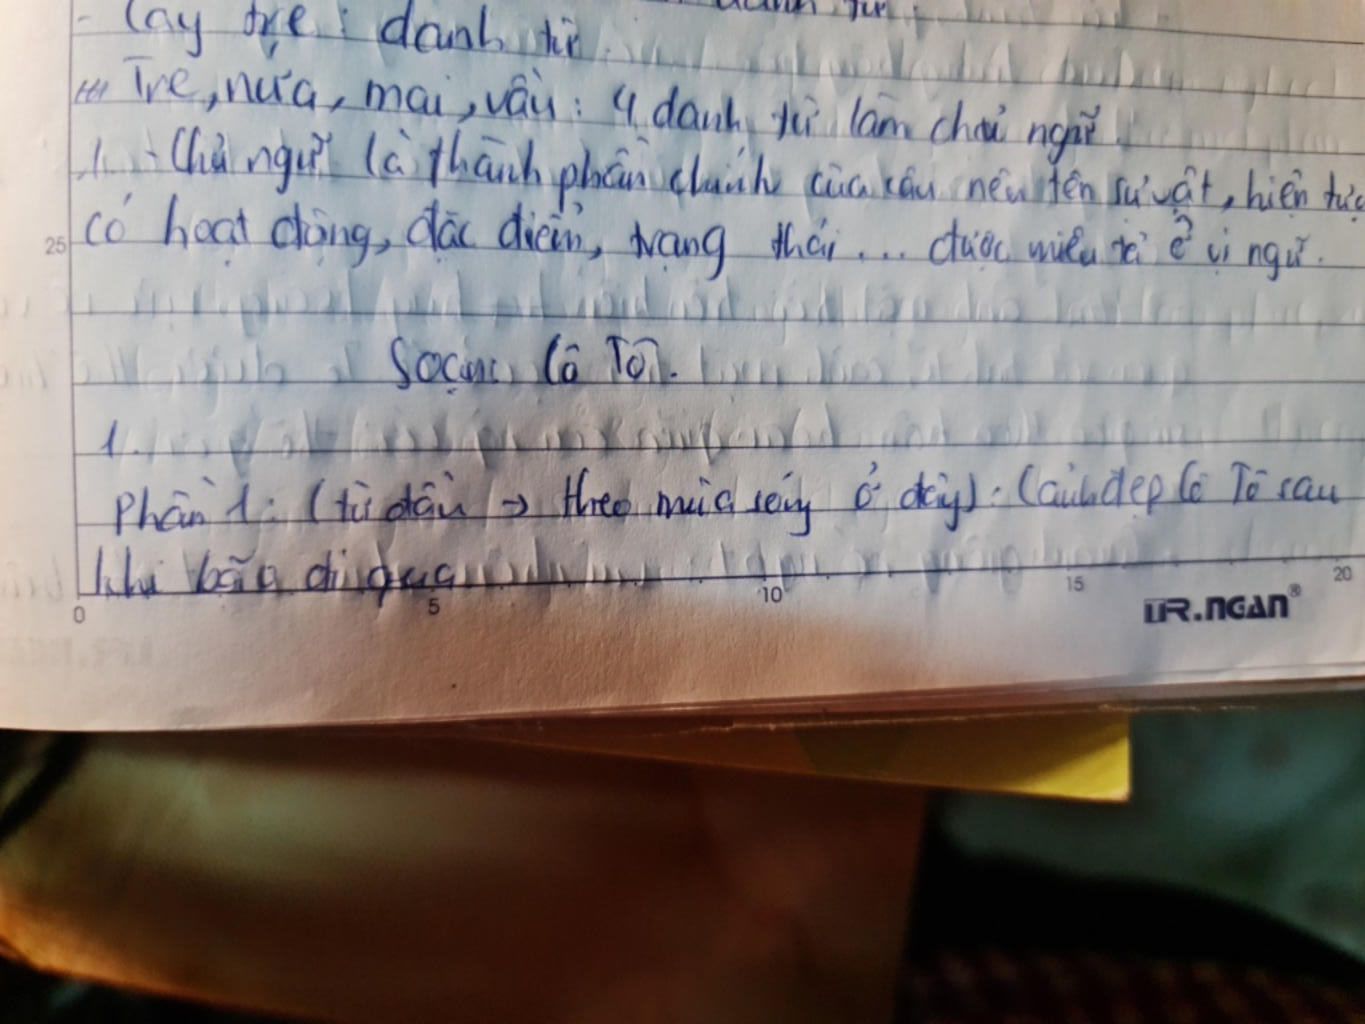 danh từ
- Cây tre : danh từ
Tre, nứa, mai, vầu : 4 danh từ làm chủ ngữ
1. - Chủ ngữ là thành phần chính của câu nêu tên sự vật, hiện tượ
25 có hoạt động, đặc điểm, trạng thái ... được miêu tả ở vị ngữ.
Soạn Cô Tô.
1.
Phần 1: (từ đầu → theo mùa sóng ở đây): Cảnh đẹp Cô Tô sau
khi bão đi qua
0 5 10 15 20
UR.NGAN®